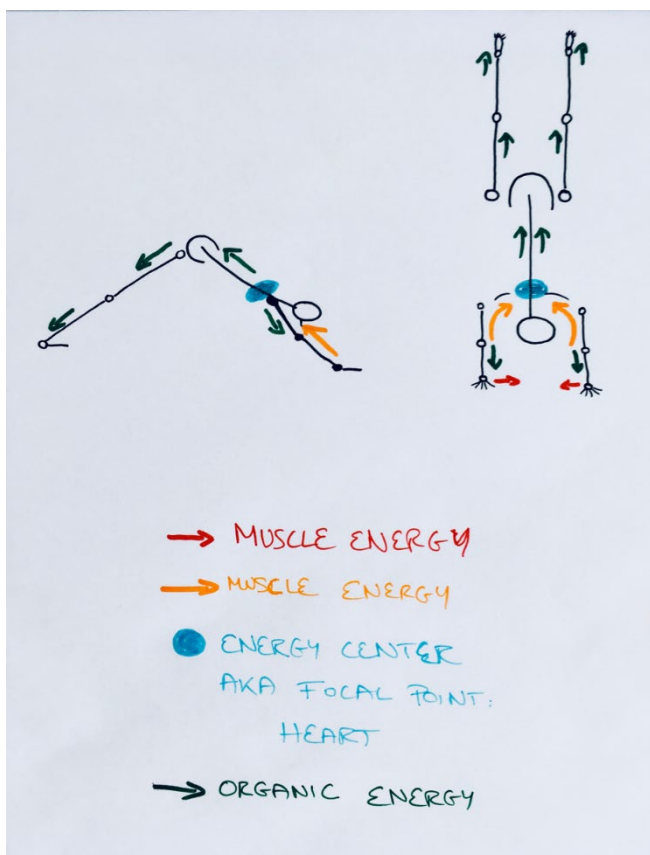 MUSCLE ENERGY
MUSCLE ENERGY
ENERGY CENTER
AKA FOCAL POINT:
HEART
ORGANIC ENERGY